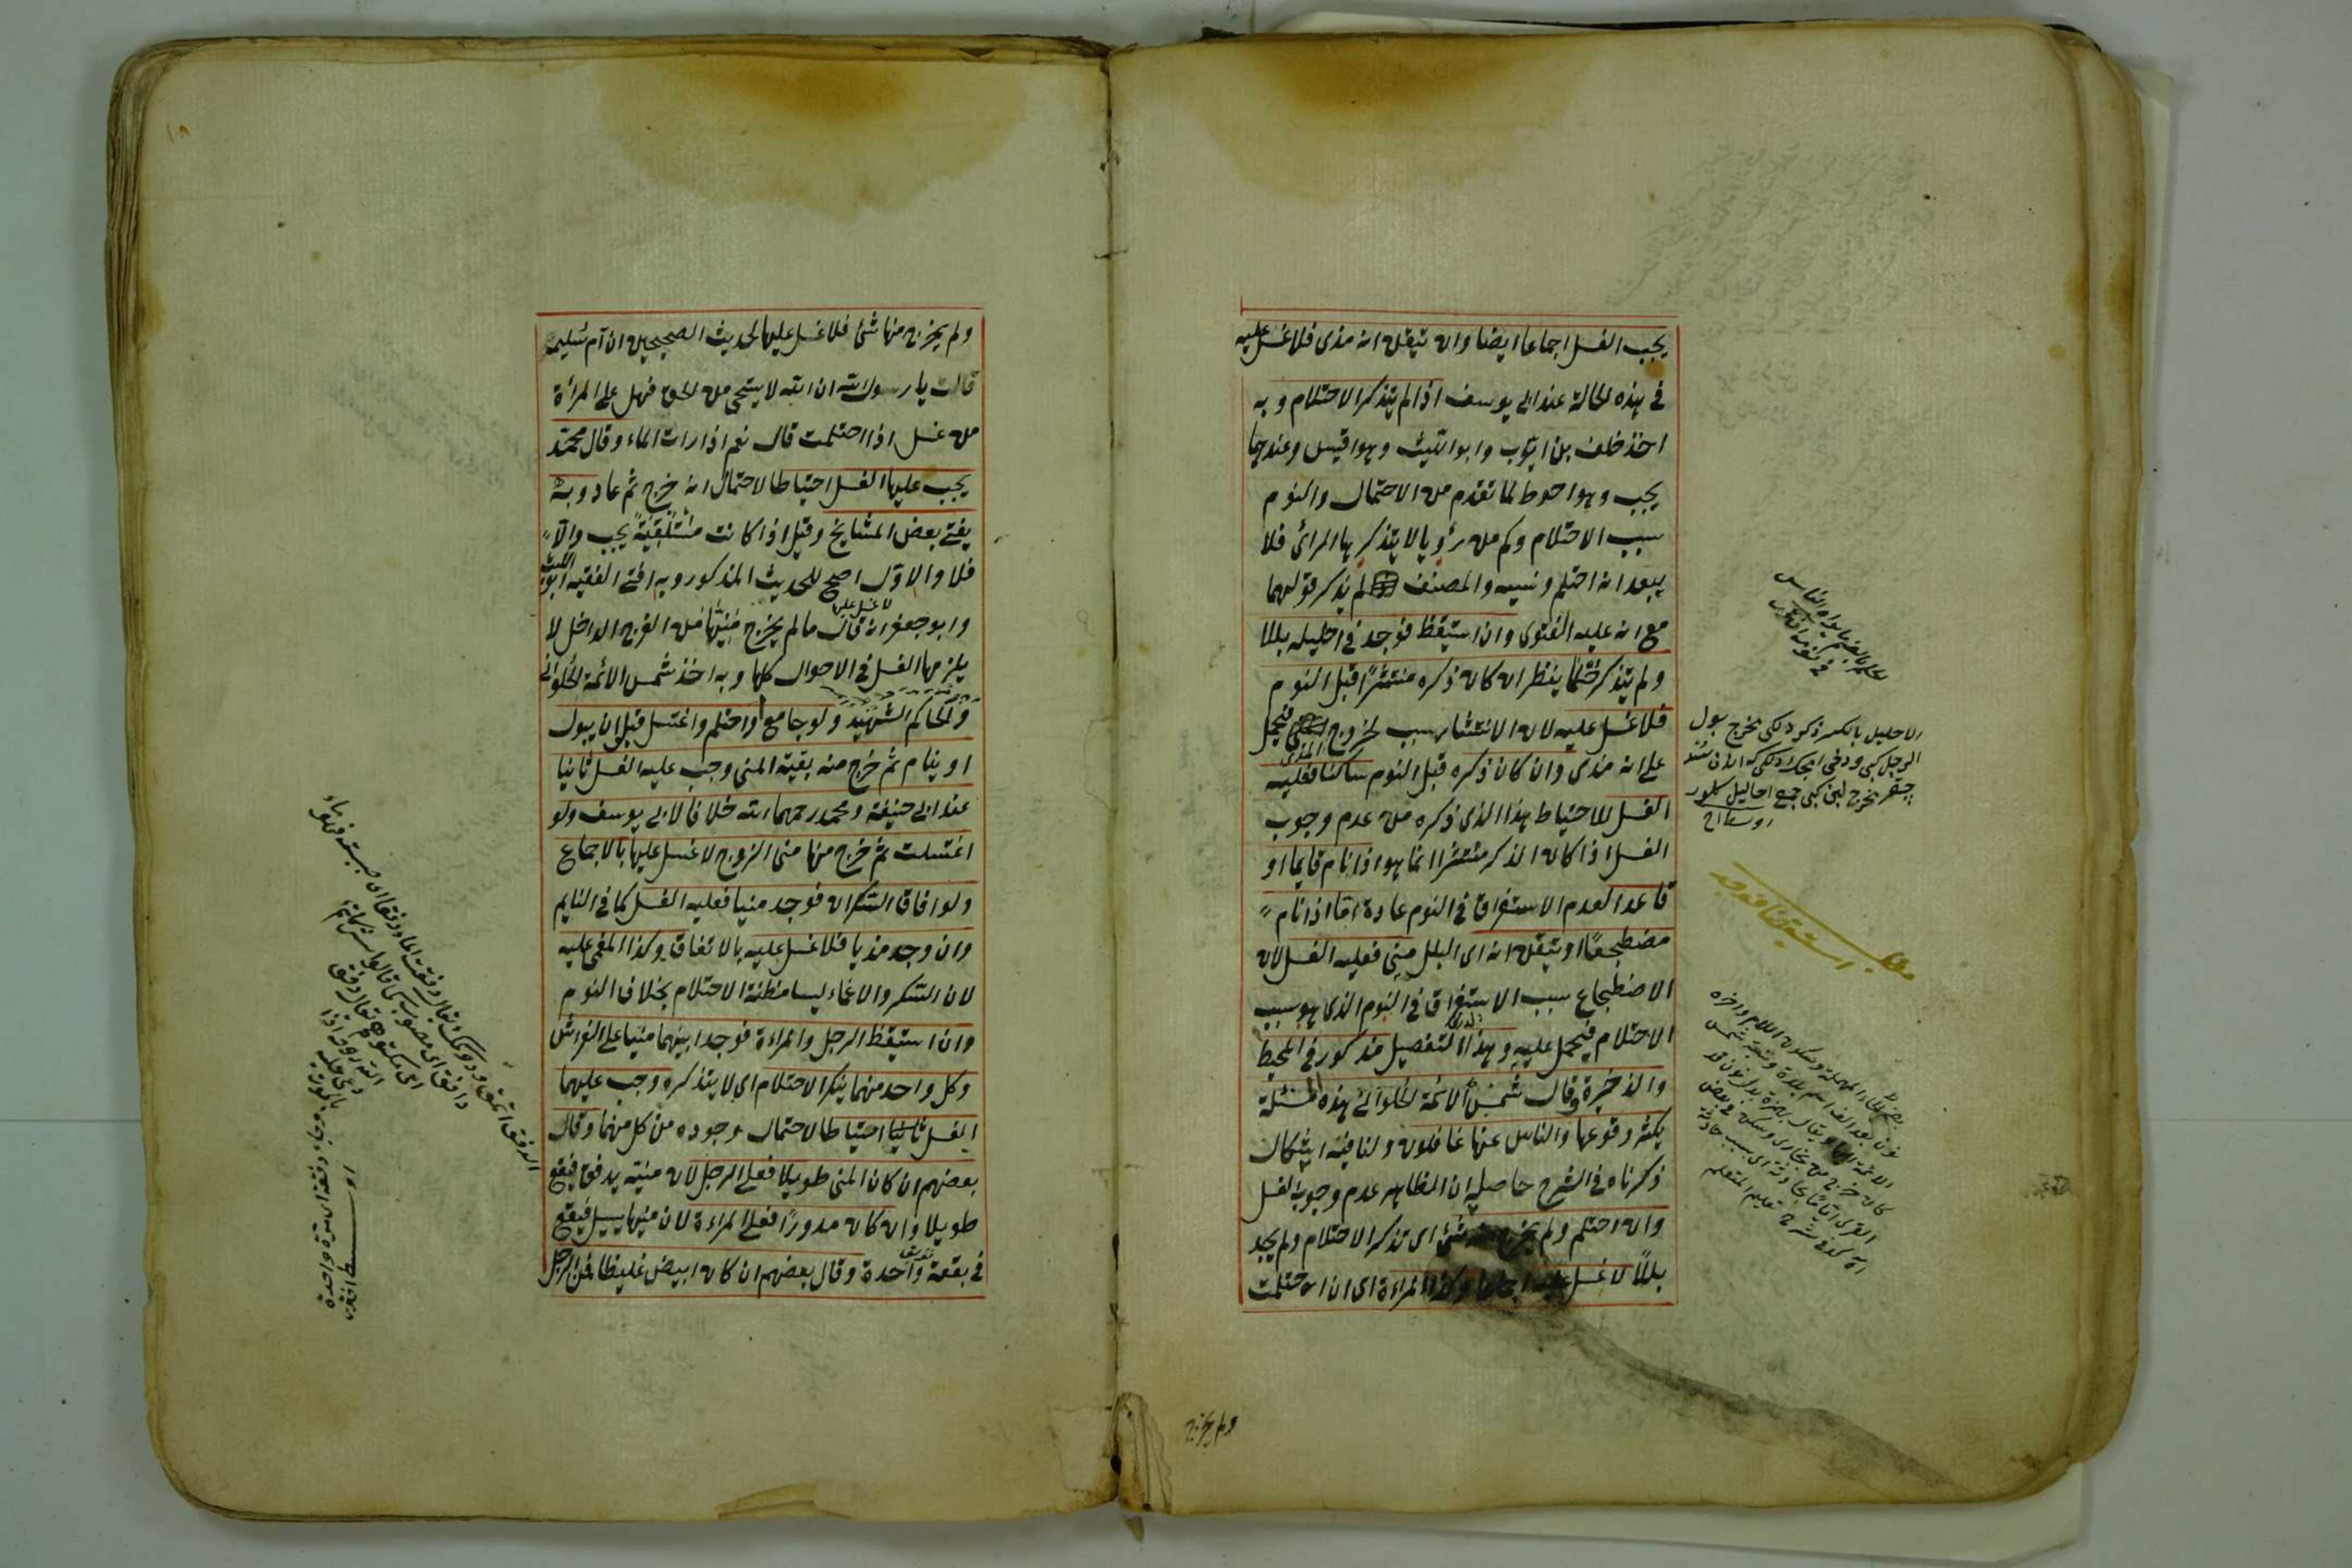 يجب الغسل اجماعا ايضا وان تيقن انه مذى فلا غسل عليه
فى هذه الحالة عند ابى يوسف اذا لم يتذكر الاحتلام وبه
اخذ خلف بن ايوب وابو الليث وهو اقيس وعندهما
يجب وهو احوط لما تقدم من الاحتمال والنوم
سبب الاحتلام وكم من رؤيا لا يتذكرها المرائى فلا
يبعد انه احتلم ونسيه والمصنف لم يذكر قولهما
مع انه عليه الفتوى وان استيقظ فوجد فى احليله بللا
ولم يتذكر حلما ينظر ان كان ذكره منتشرا قبل النوم
فلا غسل عليه لان الانتشار سبب لخروج المذى فيحمل
على انه مذى وان كان ذكره قبل النوم ساكنا فعليه
الغسل للاحتياط هذا الذى ذكره من عدم وجوب
الغسل اذا كان الذكر منتشرا انما هو اذا نام قايما او
قاعدا لعدم الاستغراق فى النوم عادة اما اذا نام
مضطجعا او تيقن انه اى البلل منى فعليه الغسل لان
الاضطجاع سبب الاستغراق فى النوم الذى هو سبب
الاحتلام فيحمل عليه وهذا التفصيل مذكور فى المحيط
والذخيرة وقال شمس الائمة الحلوانى هذه المسئلة
يكثر وقوعها والناس عنها غافلون ولنا فيه اشكال
ذكرناه فى الشرح حاصله ان الظاهر عدم وجوب الغسل
وان احتلم ولم يخرج منه شئ اى تذكر الاحتلام ولم يجد
بللا لا غسل عليه اجماعا وكذا المراءة اى ان احتلمت
ولم يخرج
الاحليل بالكسر ذكر دلكى مخرج بول
الرجل كبى
مخرج لبن كبى جمع احاليل كلور
ولم يخرج منها شئ فلا غسل عليها لحديث الصحيحين ان ام سليم
قالت يا رسول الله ان الله لا يستحى من الحق فهل على المرأة
من غسل اذا احتلمت قال نعم اذا رات الماء وقال محمد
يجب عليها الغسل احتياطا لاحتمال انه خرج ثم عاد وبه
يفتى بعض المشايخ وقيل اذا كانت مستلقية يجب والا
فلا والاول اصح للحديث المذكور وبه افتى الفقيه ابو الليث
وابو جعفر انه قال ما لم يخرج منيها من الفرج الداخل لا
لا غسل عليها
يلزمها الغسل فى الاحوال كلها وبه اخذ شمس الائمة الحلوانى
والحاكم الشهيد ولو جامع او احتلم واغتسل قبل ان يبول
او ينام ثم خرج منه بقية المنى وجب عليه الغسل ثانيا
عند ابى حنيفة ومحمد رحمهما الله خلافا لابى يوسف ولو
اغتسلت ثم خرج منها منى الزوج لا غسل عليها بالاجماع
ولو افاق السكران فوجد منيا فعليه الغسل كما فى النايم
وان وجد مذيا فلا غسل عليه بالاتفاق وكذا المغمى عليه
لان السكر والاغماء ليسا مظنة الاحتلام بخلاف النوم
وان استيقظ الرجل والمراءة فوجدا بينهما منيا على الفراش
وكل واحد منهما ينكر الاحتلام اى لا يتذكره وجب عليهما
الغسل ثانيا احتياطا لاحتمال وجوده من كل منهما وقال
بعضهم ان كان المنى طويلا فعلى الرجل لان منيه يدفق فيقع
طويلا وان كان مدورا فعلى المراءة لان منيها يسيل فيقع
فى بقعة واحدة وقال بعضهم ان كان ابيض غليظا فمن الرجل
١٨